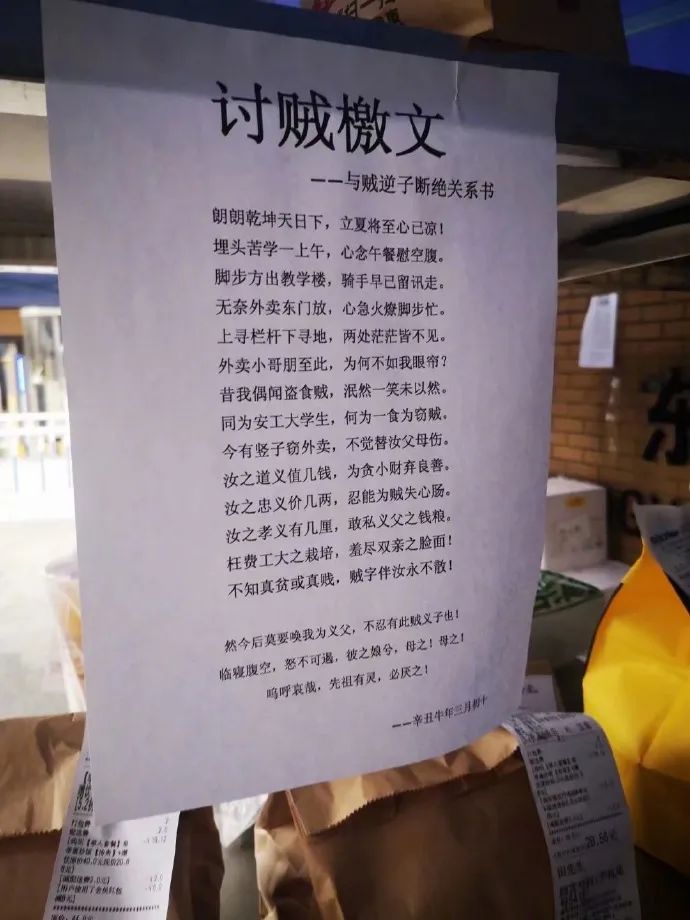 讨贼檄文
——与贼逆子断绝关系书
朗朗乾坤天日下，立夏将至心已凉！
埋头苦学一上午，心念午餐慰空腹。
脚步方出教学楼，骑手早已留讯走。
无奈外卖东门放，心急火燎脚步忙。
上寻栏杆下寻地，两处茫茫皆不见。
外卖小哥朋至此，为何不如我眼帘？
昔我偶闻盗食贼，泯然一笑未以然。
同为安工大学生，何为一食为窃贼。
今有竖子窃外卖，不觉替汝父母伤。
汝之道义值几钱，为贪小财弃良善。
汝之忠义价几两，忍能为贼失心肠。
汝之孝义有几厘，敢私义父之钱粮。
枉费工大之栽培，羞尽双亲之脸面！
不知真贫或真贱，贼字伴汝永不散！
然今后莫要唤我为义父，不忍有此贼义子也！
临寝腹空，怒不可遏，彼之娘兮，母之！母之！
呜呼哀哉，先祖有灵，必厌之！
——辛丑牛年三月初十
打包费
配送费
28.50元